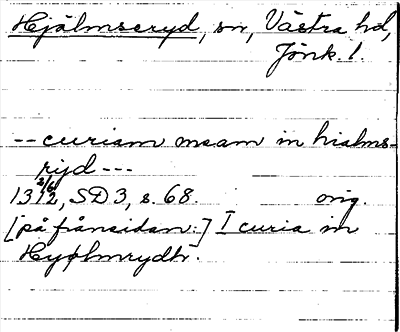 Hjälmseryd, sn, Västra hd,
Jönk. l.
-- curiam meam in hialms-
ryd ---
13 2/6 12, SD 3, s. 68. orig.
[på frånsidan:] I curia in
Hyølmrydh.